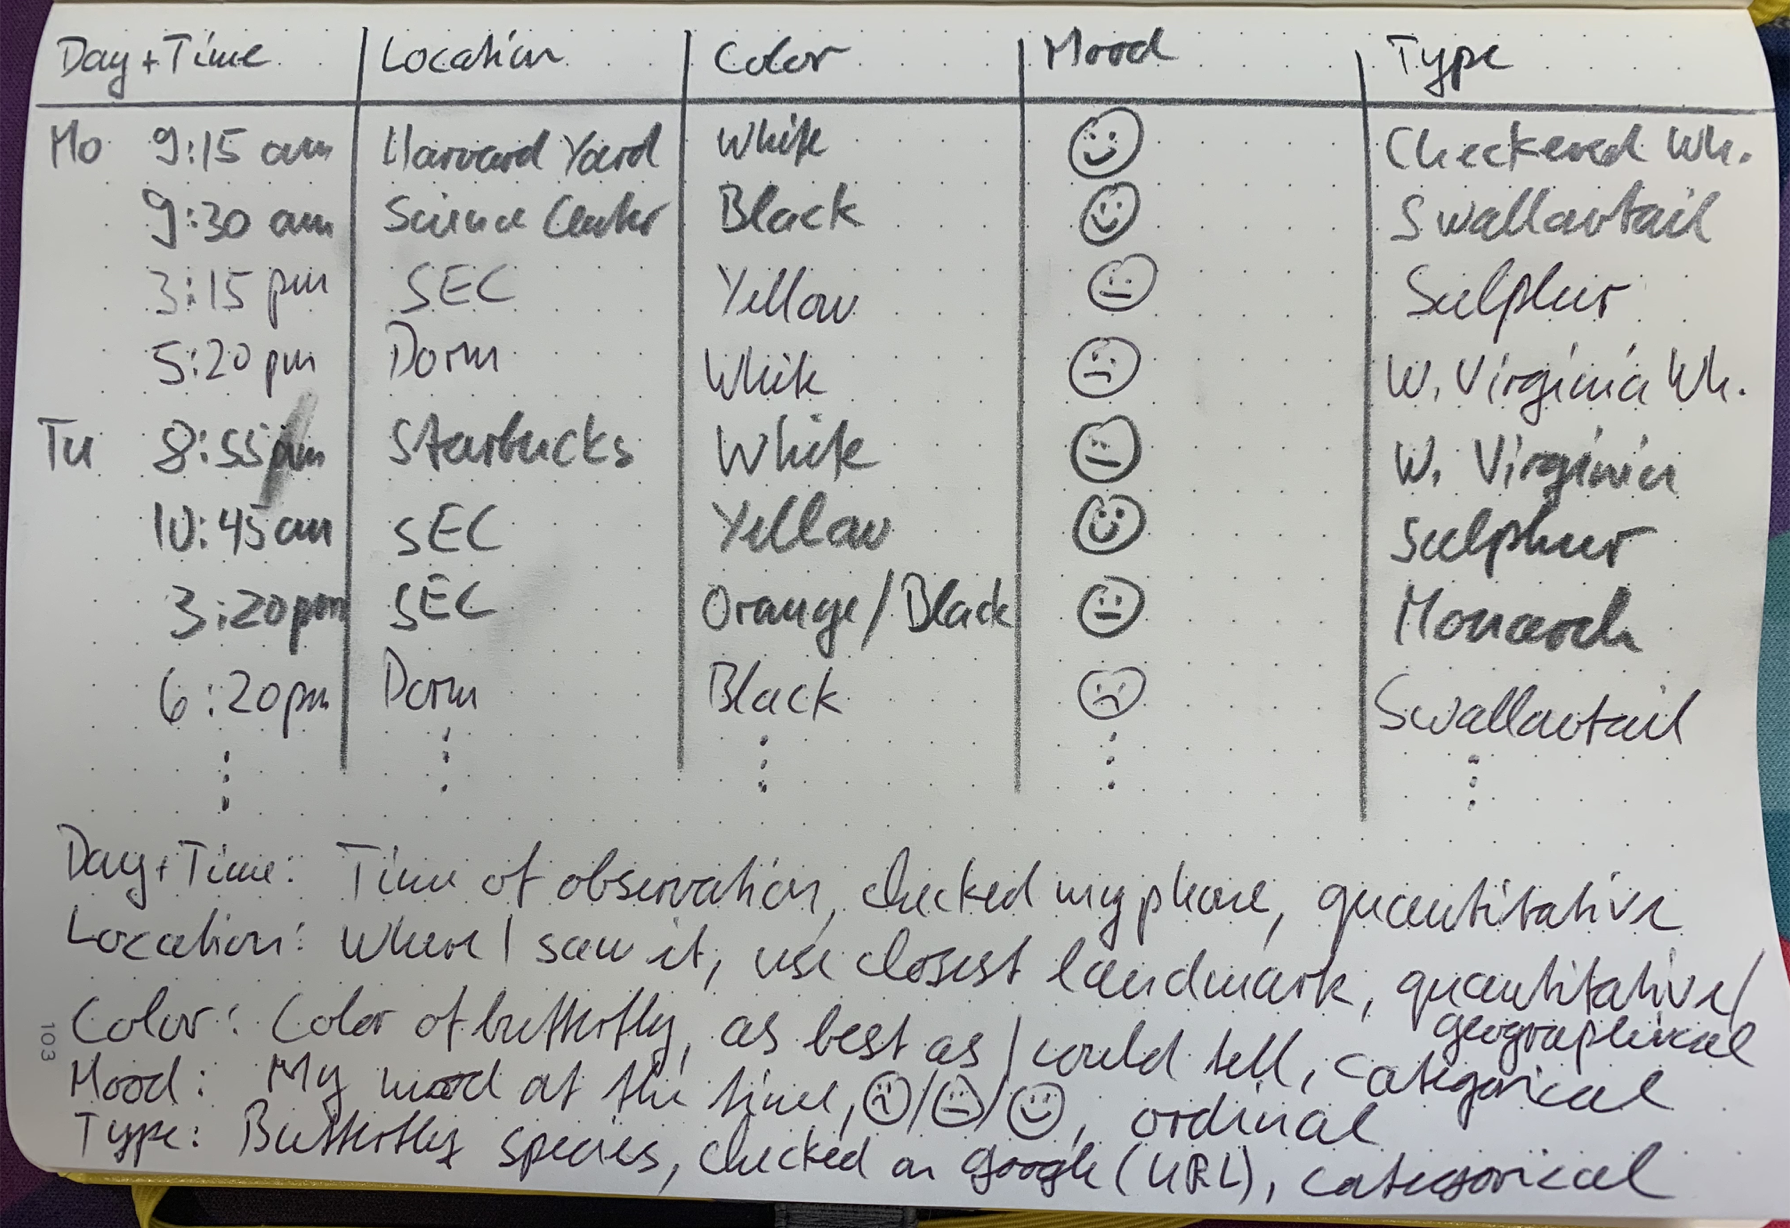 Day+Time Location Color Mood Type
Mo 9:15 am Harvard Yard White Checkered Wh.
9:30 am Science Center Black Swallowtail
3:15 pm SEC Yellow Sulphur
5:20 pm Dorm White W. Virginia Wh.
Tu 8:55 am Starbucks White W. Virginia
10:45 am SEC Yellow Sulphur
3:20pm SEC Orange/Black Monarch
6:20pm Dorm Black Swallowtail
Day+Time: Time of observation, checked my phone, quantitative
Location: Where I saw it, use closest landmark, quantitative/
geographical
Color: Color of butterfly, as best as I could tell, categorical
Mood: My mood at the time, / / , ordinal
Type: Butterfly species, checked on google (URL), categorical
103